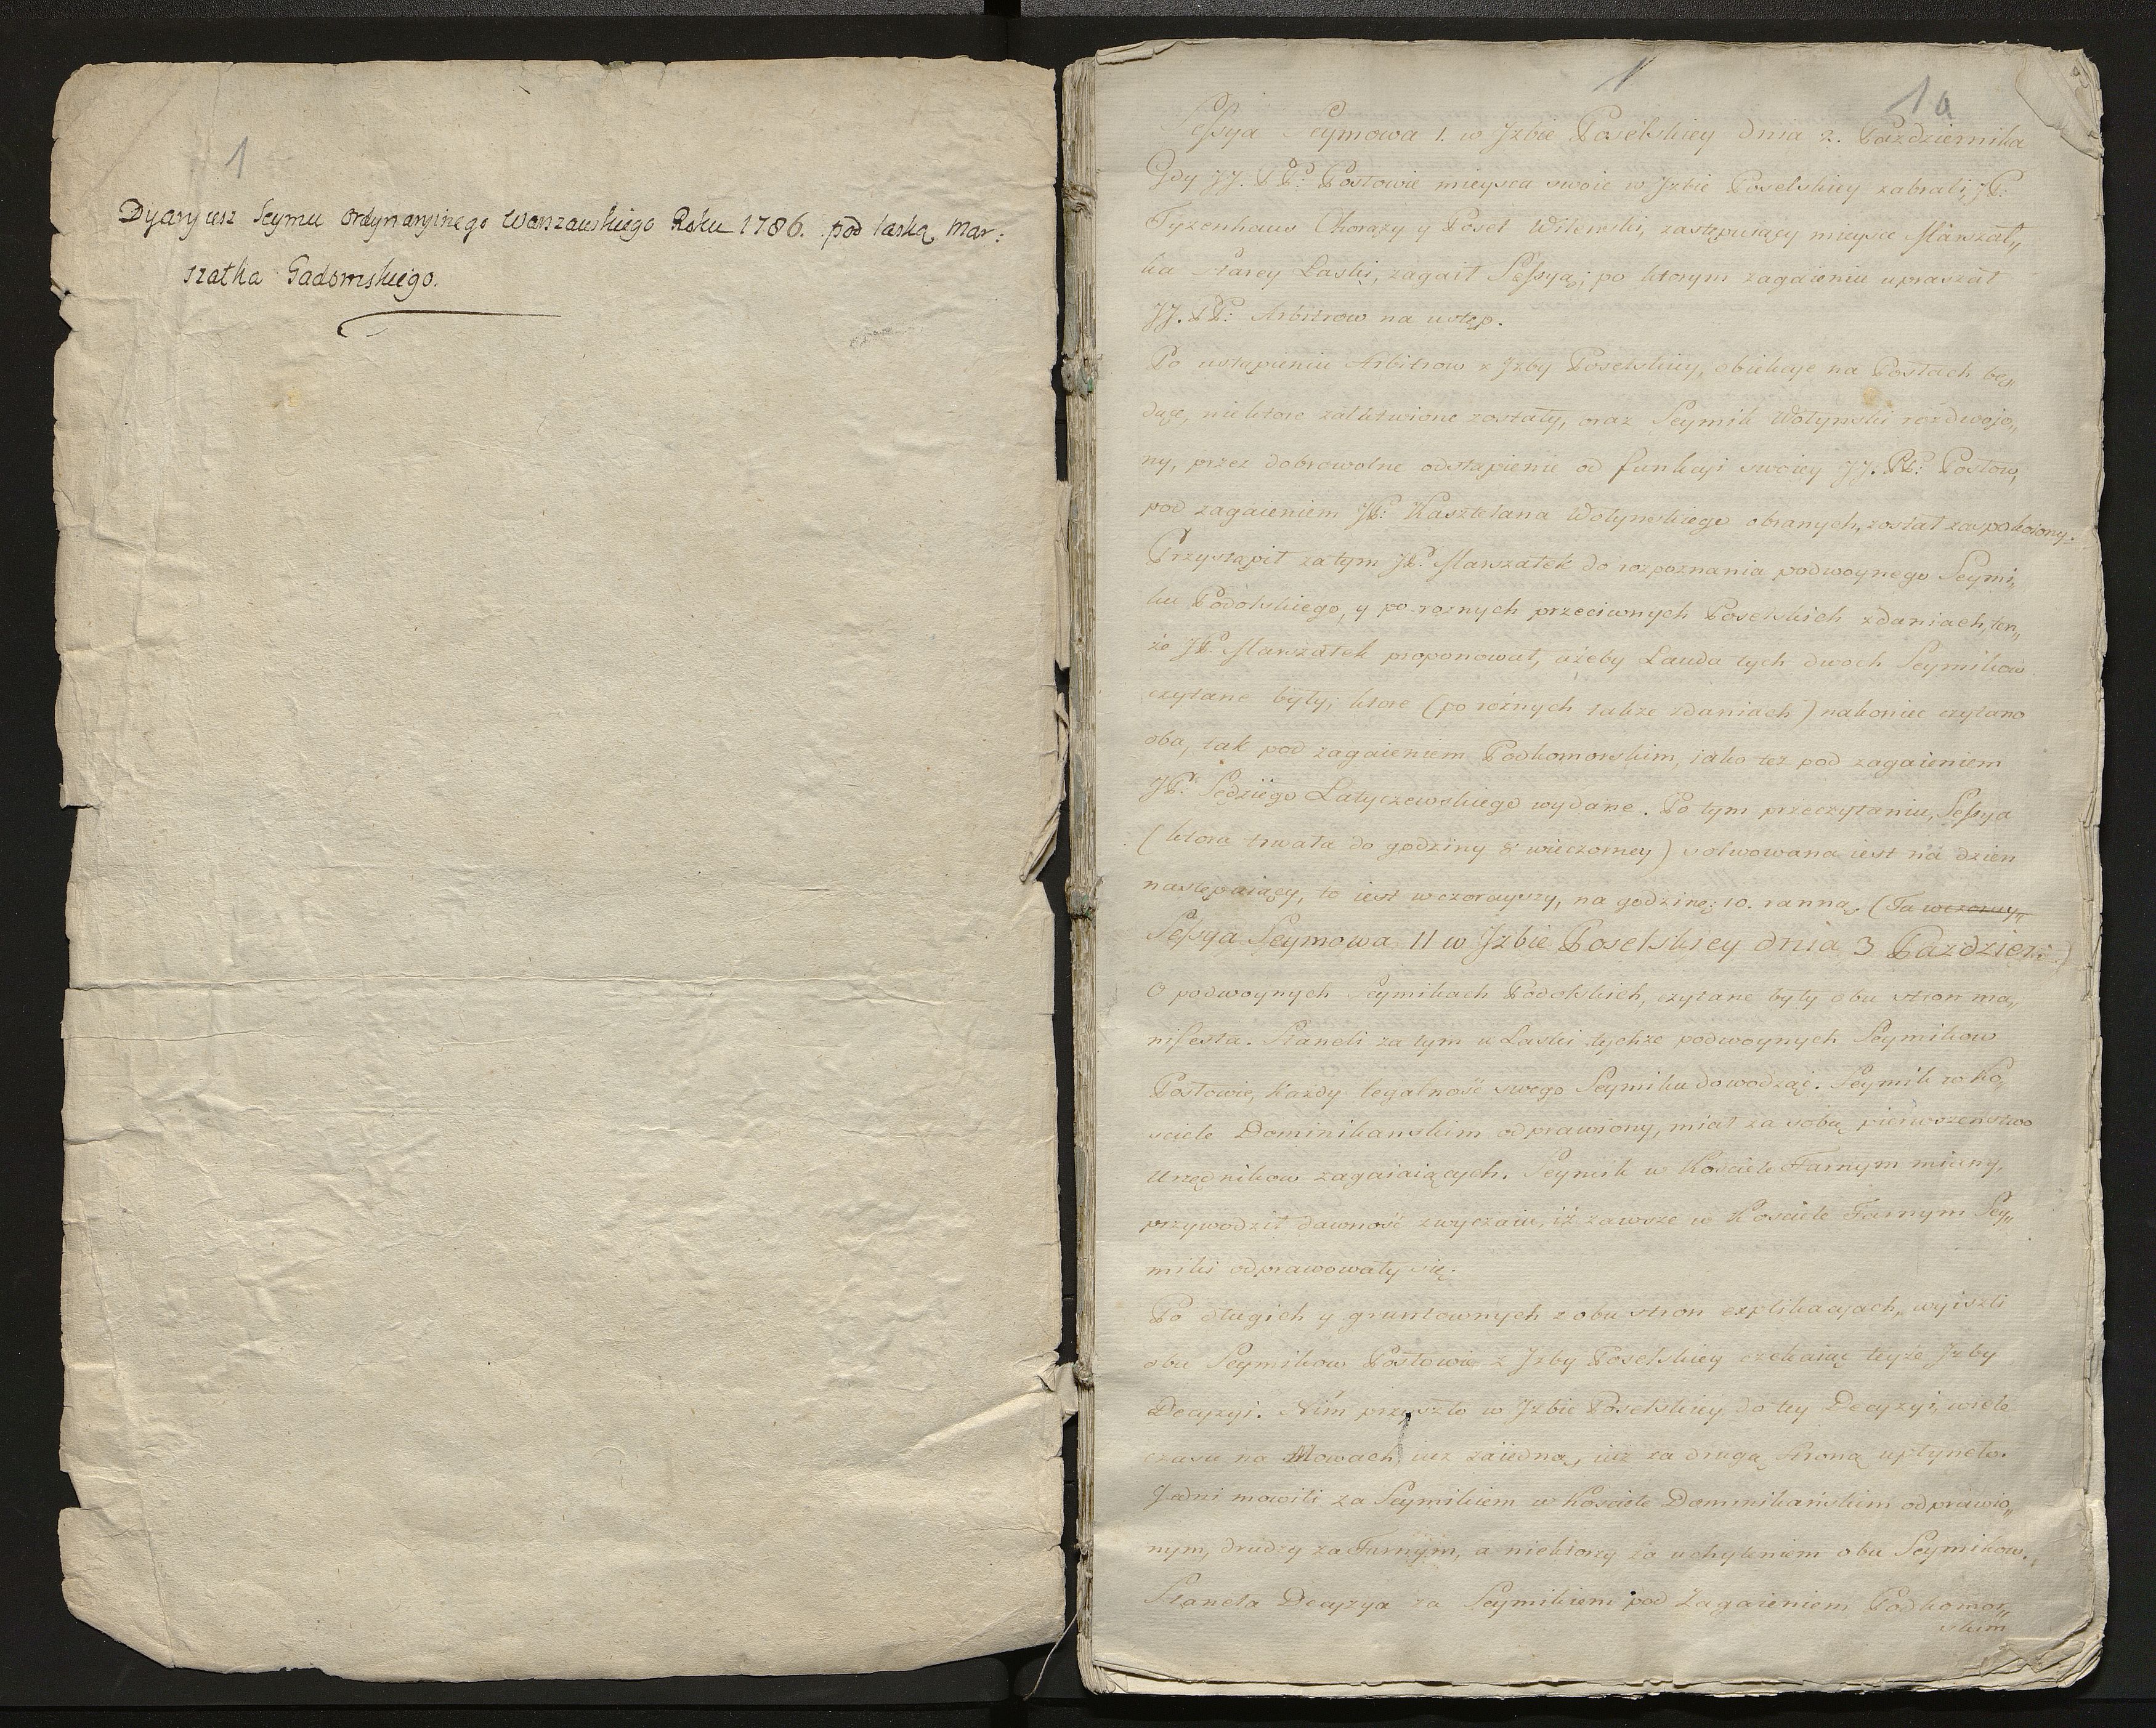 1
Dyaryusz Seymu Ordynaryinego Warszawskiego Roku 1786. pod laską Mar:
szałka Gadomskiego.
1
1a
Seſsya Seymowa 1. w Jzbie Poselskiey dnia 2. Pazdziernika
Gdy JJ. PP: Posłowie mieysca swoie w Jzbie Poselskiey zabrali, JP:
Tyzenhaus Chorąży y Poseł Wilenski, zastępuiący mieysce Marszał„
ka Starey Laski, zagaił Seſsyą; po ktorym zagaieniu upraszał
JJ. PP: Arbitrow na ustęp.
Po ustąpieniu Arbitrow z Jzby Poselskiey, obiekcye na Posłach bę„
dące, niektore załatwione zostały, oraz Seymik Wołynski rozdwojo„
ny, przez dobrowolne odstąpienie od funkcyi swoiey JJ. PP: Posłow,
pod zagaieniem JP: Kasztelana Wołynskiego obranych, został zaspokoiony.
Przystąpił zatym JP. Marszałek do rozpoznania podwoynego Seymi„
ku Podolskiego, y po roznych przeciwnych Poselskich zdaniach, ten„
że JP. Marszałek proponował, ażeby Lauda tych dwoch Seymikow
czytane były; ktore (po rożnych także zdaniach) nakoniec czytano
oba, tak pod zagaieniem Podkomorskim, iako tez pod zagaieniem
JP. Sędziego Latyczewskiego wydane. Po tym przeczytaniu, Seſsya
(ktora trwała do godziny 8 wieczorney) solwowana iest na dzien
następuiący, to iest wczorayszy, na godzinę 10. ranną. (Ta wczoray„
Seſsya Seymowa II w Jzbie Poselskiey dnia 3 Pazdzier:)
O podwoynych Seymikach Podolskich, czytane były obu stron ma„
nifesta. Staneli za tym u Laski tychże podwoynych Seymikow
Posłowie, każdy legalność swego Seymiku dowodząc. Seymik w Ko„
sciele Dominikanskim odprawiony, miał za sobą pierwszenstwo
Urzędnikow zagaiaiących. Seymik w Kościele Farnym miany,
przywodził dawność zwyczaiu, iż zawsze w Kosciele Farnym Sey„
miki odprawowały się.
Po długich y gruntownych z obu stron explikacyach, wyiszli
obu Seymikow Posłowie z Jzby Poselskiey czekaiąc teyże Jzby
Decyzyi. Nim przyszło w Jzbie Poselskiey do tey Decyzyi, wiele
czasu na Mowach, iuz za iedną, iuż za drugą stroną upłynęło.
Jedni mowili za Seymikiem w Kosciele Dominikańskim odprawio„
nym, drudzy za Farnym, a niektorzy za uchyleniem obu Seymikow.
Staneła Decyzya za Seymikiem pod Zagaieniem Podkomor„
skim